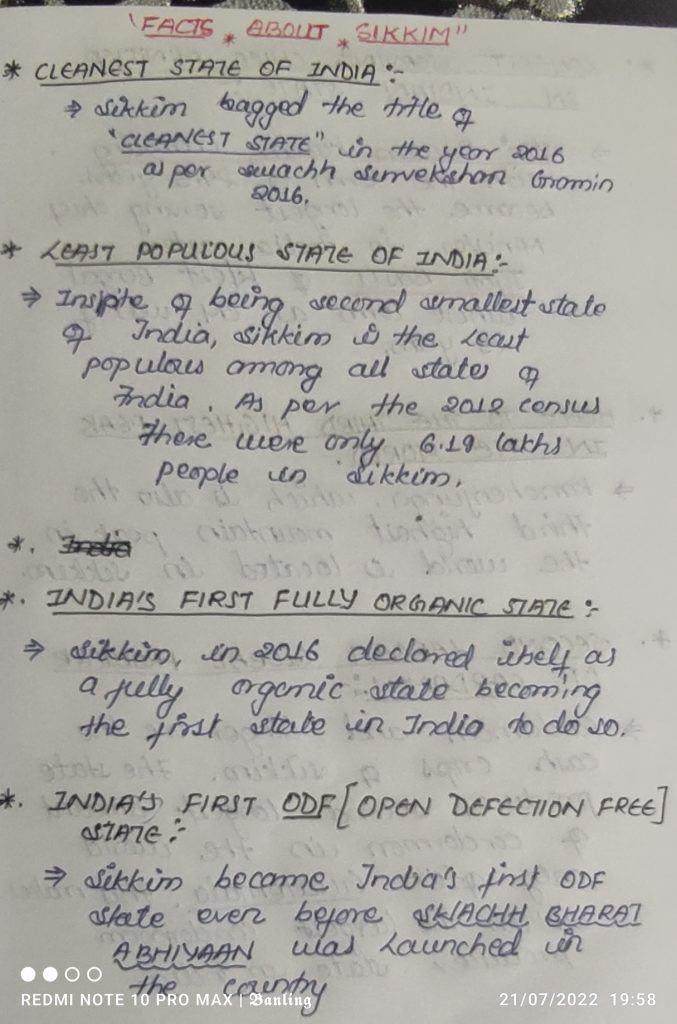 "FACTS * ABOUT * SIKKIM"
* CLEANEST STATE OF INDIA :-
⇒ Sikkim bagged the title of
"CLEANEST STATE" in the year 2016
as per swachh survekshan Gramin
2016.
* LEAST POPULOUS STATE OF INDIA :-
⇒ Inspite of being second smallest state
of India, sikkim is the least
populous among all states of
India. As per the 2012 census
there were only 6.19 lakhs
people in sikkim.
*. India
*. INDIA'S FIRST FULLY ORGANIC STATE :-
⇒ Sikkim, in 2016 declared itself as
a fully organic state becoming
the first state in India to do so.
*. INDIA'S FIRST ODF [OPEN DEFECTION FREE]
STATE :-
⇒ Sikkim became India's first ODF
state even before SWACHH BHARAT
ABHIYAAN was launched in
the country
REDMI NOTE 10 PRO MAX | Banling
21/07/2022 19:58